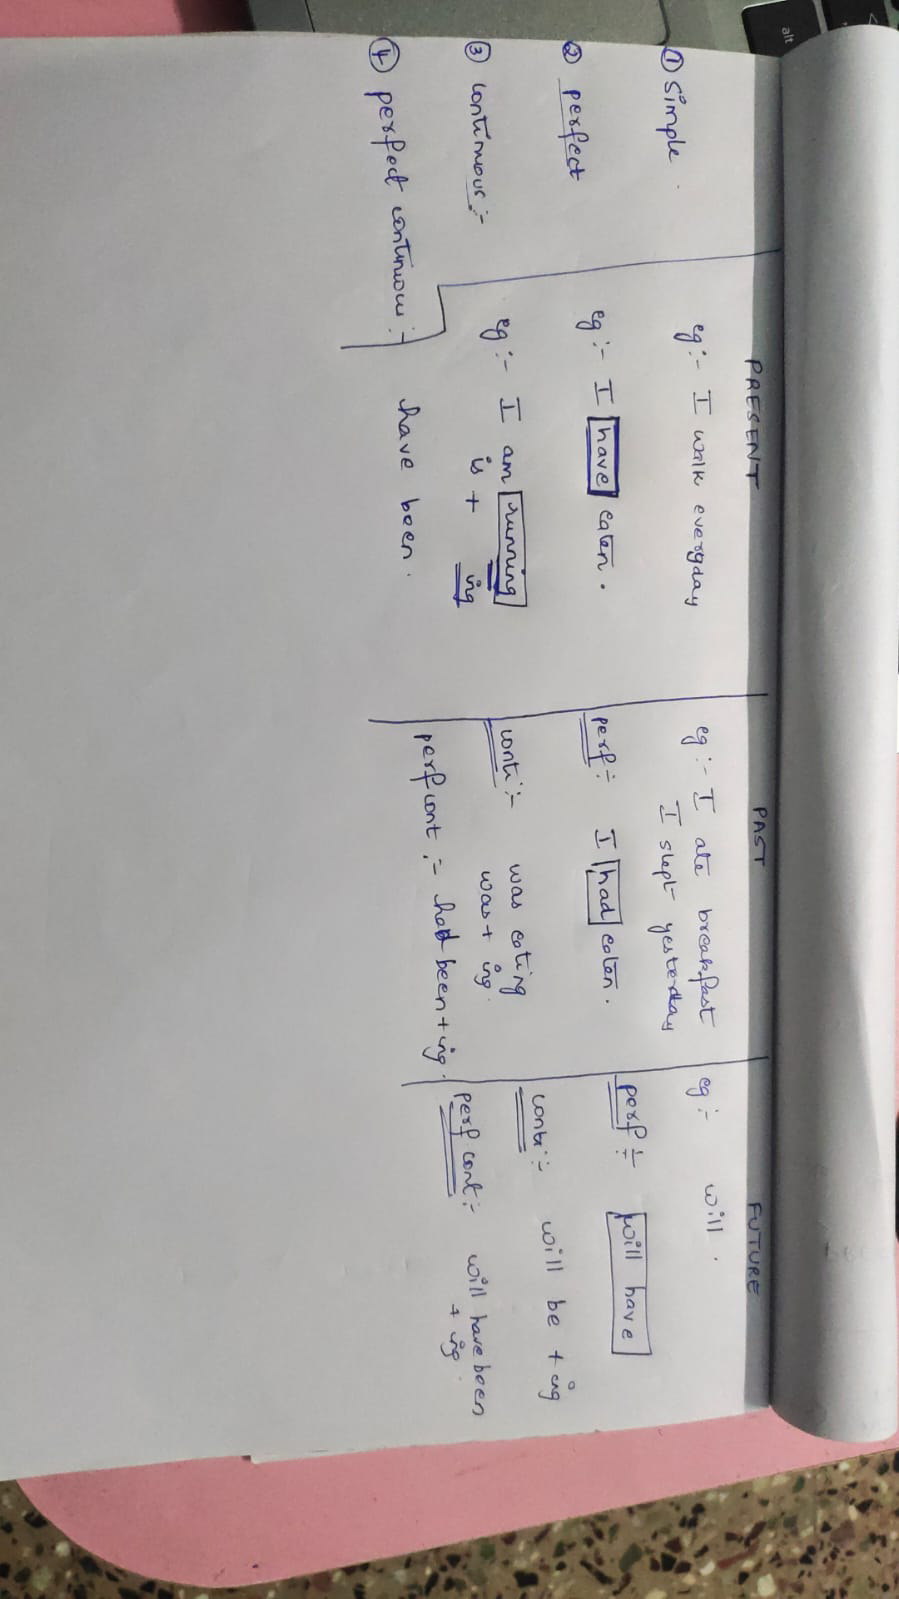 PRESENT PAST FUTURE
① Simple. eg:- I walk everyday eg:- I ate breakfast eg:- will.
I slept yesterday
② perfect eg:- I have eaten. perf:- I had eaten. perf:- will have
③ continuous:- eg:- I am running conti:- was eating conti:- will be + ing
is + ing was + ing.
④ perfect continuous:- have been. perf cont:- had been + ing. perf cont:- will have been
+ ing.
alt